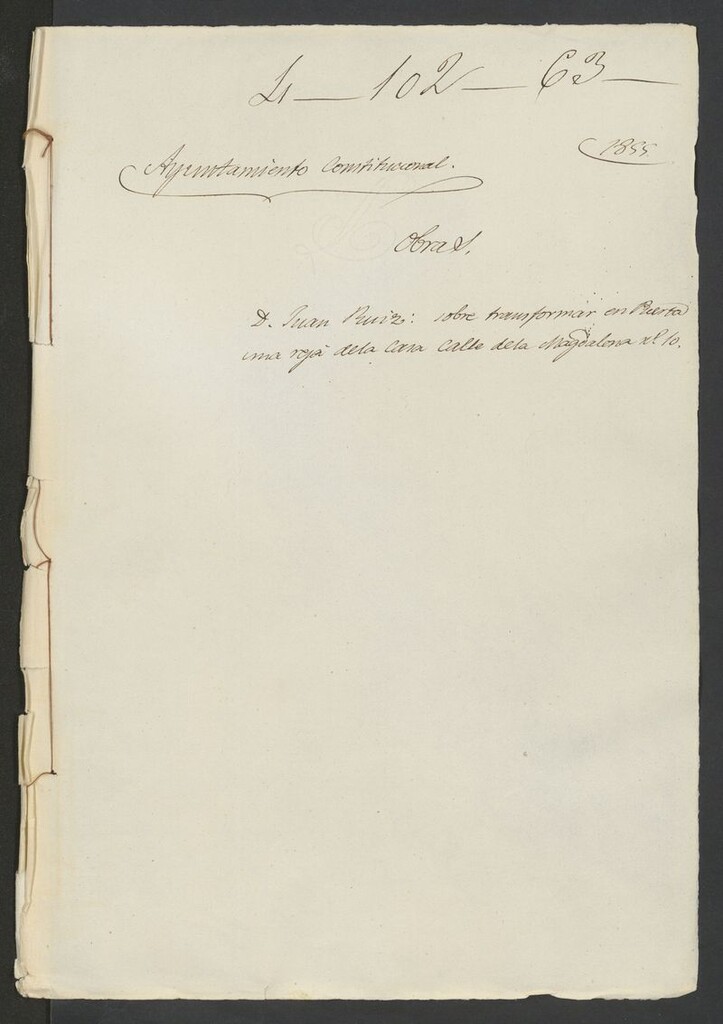 L — 102 — 63 —
1855.
Ayuntamiento Constitucional.
Obras.
D. Juan Ruiz: sobre transformar en Puerta
una reja dela Casa Calle dela Magdalena nº 10.